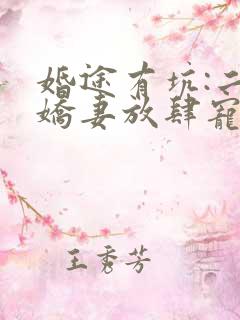 婚途有坑:二
嬌妻放肆寵
王秀芳